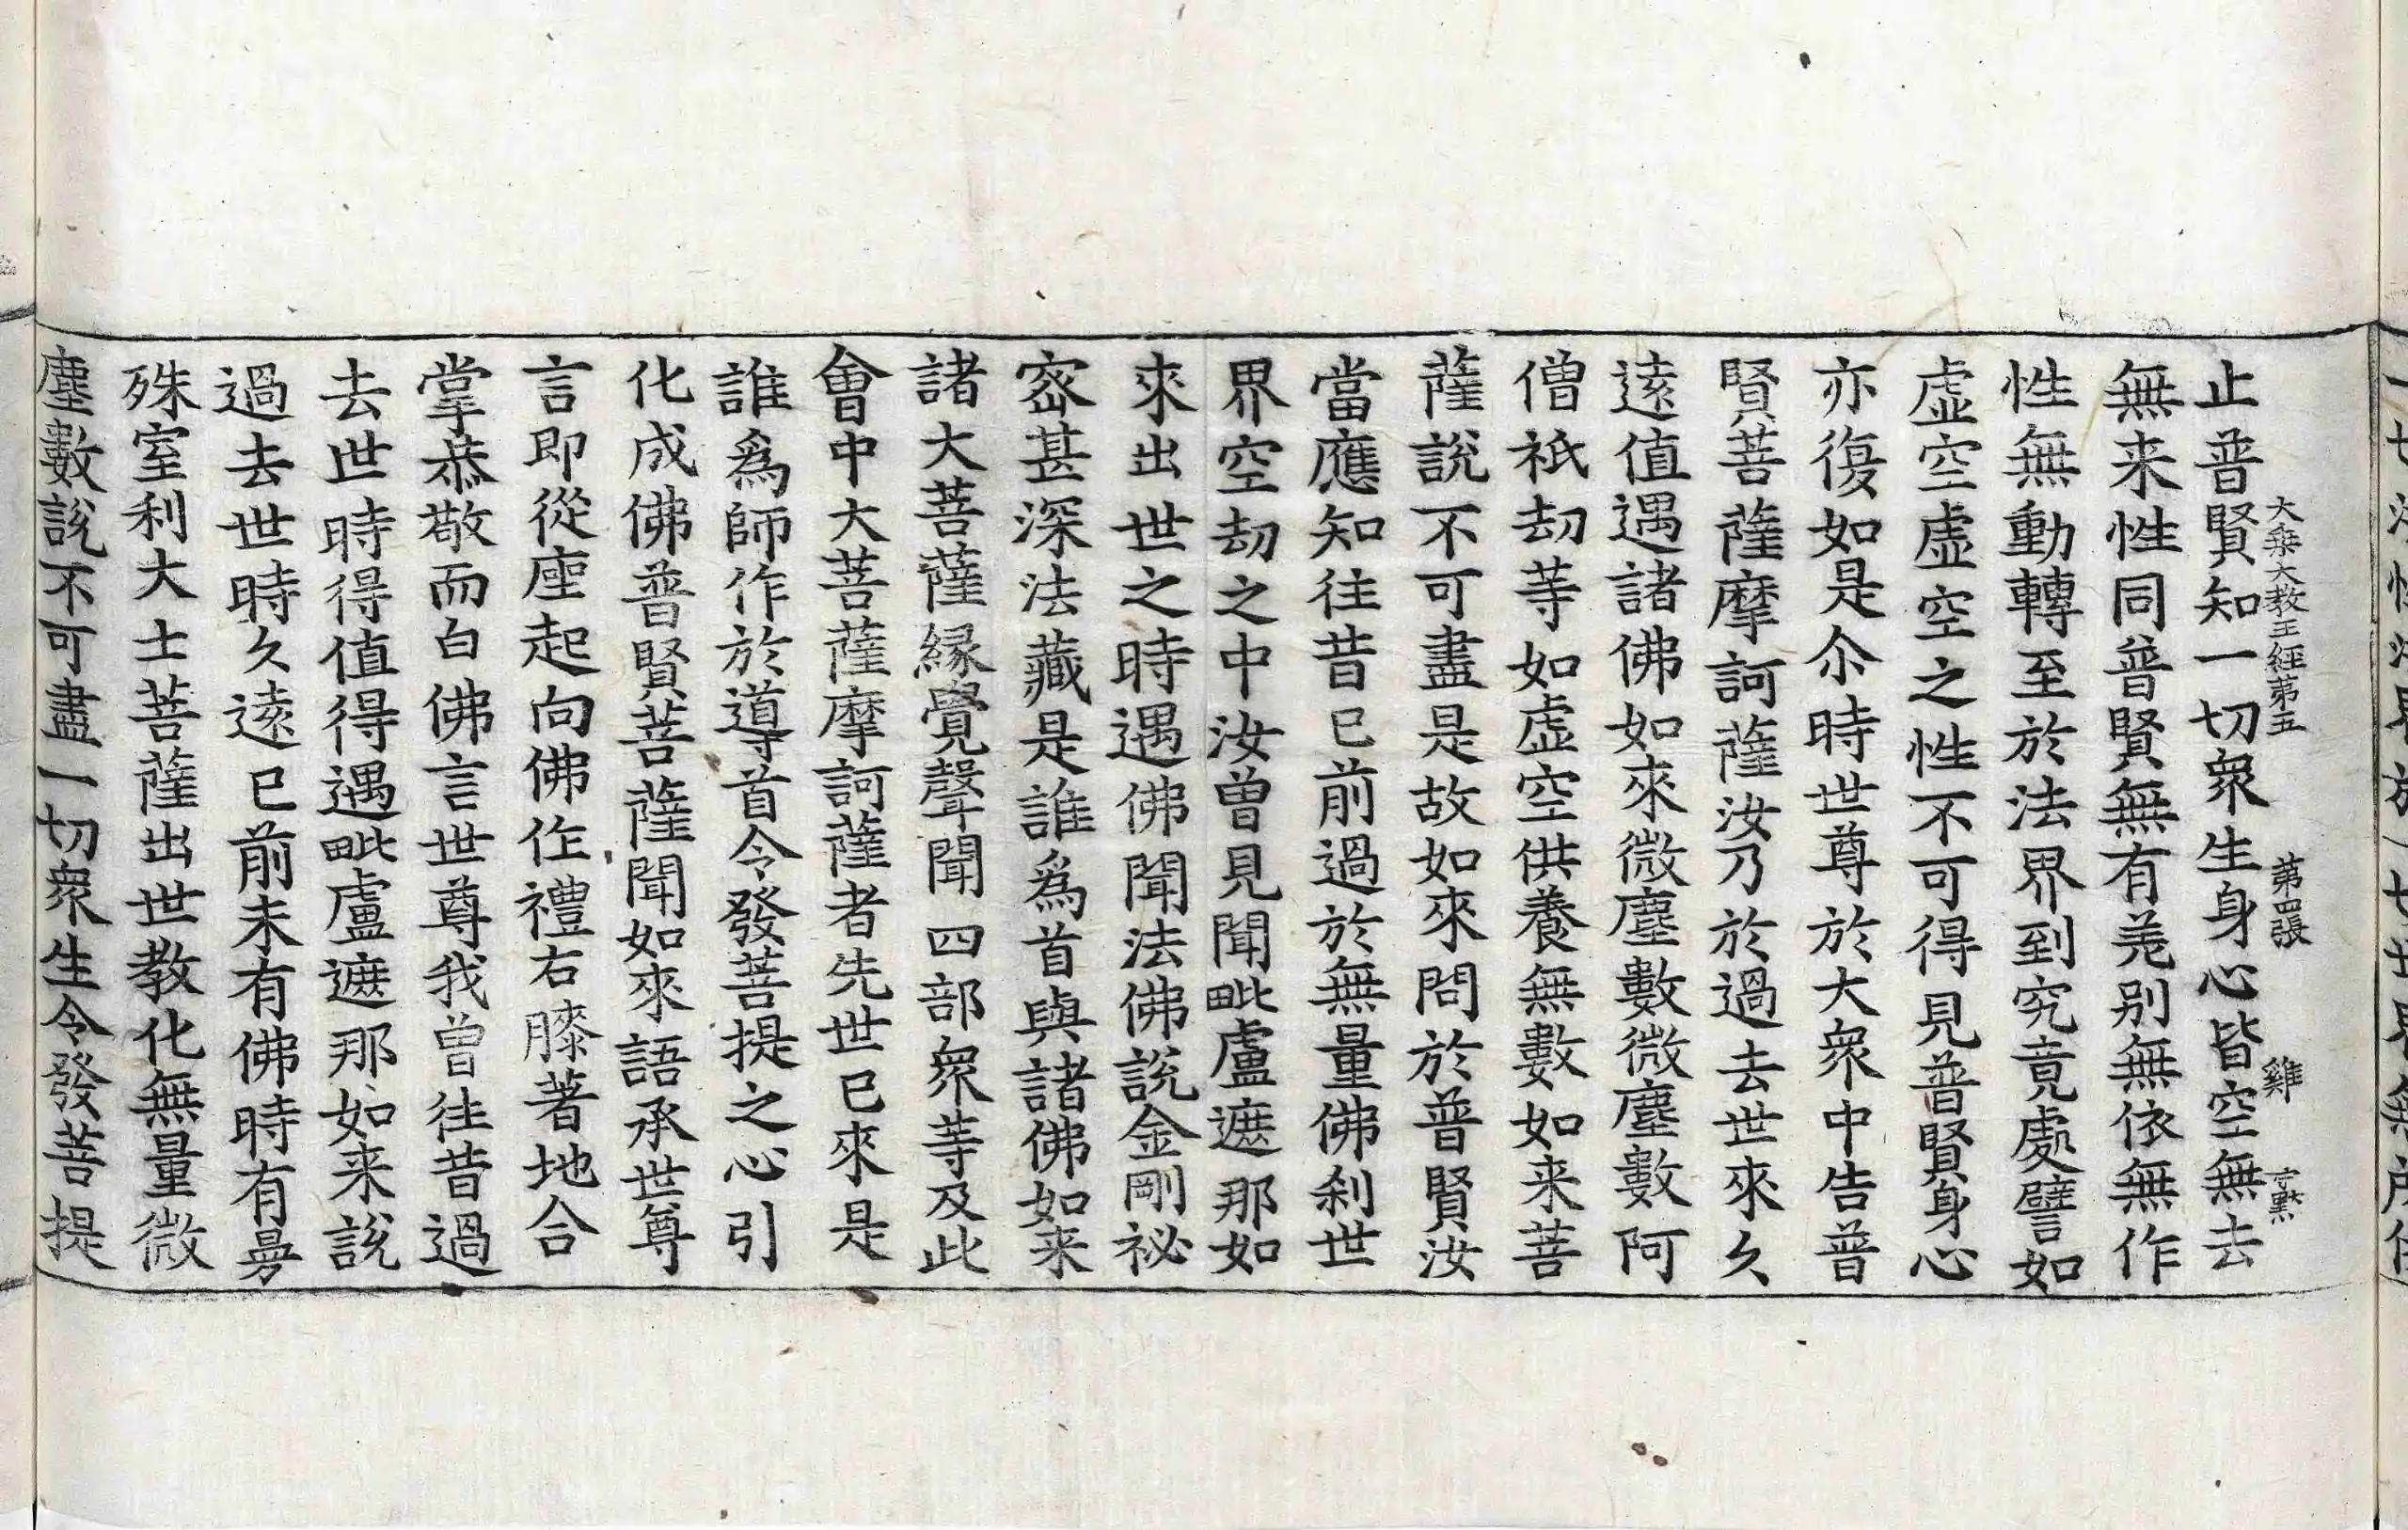 大乘大教王經第五 第四張 雞
止普賢知一切衆生身心皆空無去
無来性同普賢無有差別無依無作
性無動轉至於法界到究竟處譬如
虛空虛空之性不可得見普賢身心
亦復如是尒時世尊於大衆中告普
賢菩薩摩訶薩汝乃於過去世來久
遠值遇諸佛如來微塵數微塵數阿
僧祇劫等如虛空供養無數如来菩
薩說不可盡是故如來問於普賢汝
當應知往昔已前過於無量佛刹世
界空劫之中汝曾見聞毗盧遮那如
來出世之時遇佛聞法佛說金剛祕
密甚深法藏是誰爲首與諸佛如来
諸大菩薩緣覺聲聞四部衆等及此
會中大菩薩摩訶薩者先世已來是
誰爲師作於導首令發菩提之心引
化成佛普賢菩薩聞如來語承世尊
言即從座起向佛作禮右膝著地合
掌恭敬而白佛言世尊我曾往昔過
去世時得值得遇毗盧遮那如来說
過去世時久遠已前未有佛時有曼
殊室利大士菩薩出世教化無量微
塵數說不可盡一切衆生令發菩提